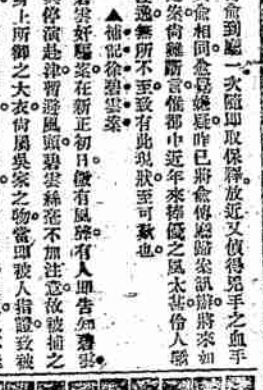 俞到廳一次隨即取保釋放近又偵得兇手之血手
俞相同愈易嫌疑昨已將俞傳廳歸案訊辦將來如
之案尚難斷言惟都中近年來捧伶之風太甚伶人驕
淫逸無所不至致有此現狀至可歎也
▲補記徐碧雲案
碧雲好騙案在新正初日微有風聲有人即告知碧雲
停演赴津暫避風頭碧雲絲毫不加注意故被捕之
身上所御之大衣尚屬吳家之物當即被人指證致被